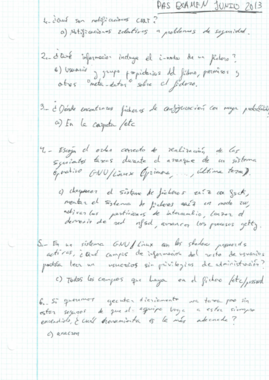 DAS EXAMEN JUNIO 2013
1.- ¿Qué son notificaciones CERT?
a) Notificaciones relativas a problemas de seguridad.
2.- ¿Qué información incluye el i-nodo de un fichero?
b) Usuario y grupo propietarios del fichero, permisos y
otros "meta-datos" sobre el fichero.
3.- ¿Dónde encontramos ficheros de configuración con mayor probabilidad?
a) En la carpeta /etc
Escoja el orden correcto de realización de las
siguientes tareas durante el arranque de un sistema
operativo GNU/Linux (primera, ..., última tarea)
a) chequear el sistema de ficheros raíz con fsck,
montar el sistema de ficheros raíz en modo rw,
activar las particiones de intercambio, lanzar el
demonio de , lanzar procesos getty.
5.- En un sistema GNU/Linux con las shadow passwords
activas, ¿Qué campos de información del resto de usuarios
puede leer un usuario sin privilegios de administración?
c) Todos los campos que haya en el fichero /etc/passwd
6.- Si queremos ejecutar diariamente una tarea pero no
estamos seguros de que el equipo vaya a estar siempre
encendido, ¿cuál herramienta es la más adecuada?
a) anacron